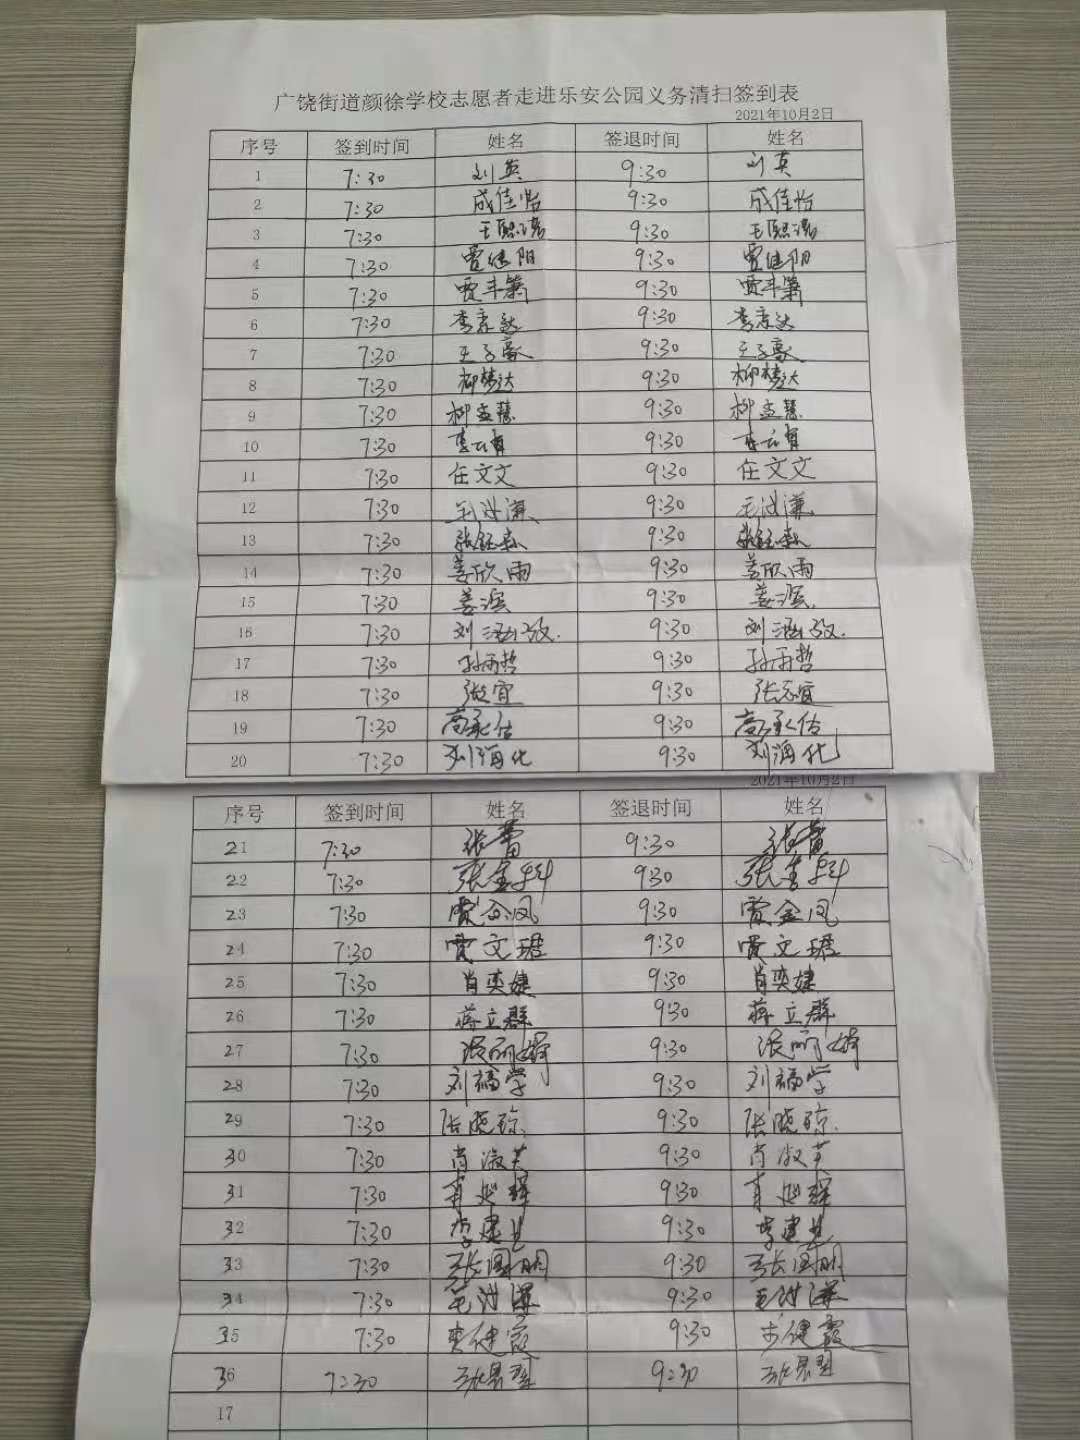 广饶街道颜徐学校志愿者走进乐安公园义务清扫签到表
2021年10月2日
序号 签到时间 姓名 签退时间 姓名
1 7:30 刘英 9:30 刘英
2 7:30 成佳怡 9:30 成佳怡
3 7:30 王熙 9:30 王熙
4 7:30 贾继阳 9:30 贾继阳
5 7:30 贾丰 9:30 贾丰
6 7:30 李京达 9:30 李京达
7 7:30 王子豪 9:30 王子豪
8 7:30 柳梦达 9:30 柳梦达
9 7:30 柳孟慧 9:30 柳孟慧
10 7:30 9:30
11 7:30 任文文 9:30 任文文
12 7:30 9:30
13 7:30 张钰 9:30 张钰
14 7:30 姜欣雨 9:30 姜欣雨
15 7:30 姜滨 9:30 姜滨
16 7:30 刘涵 9:30 刘涵
17 7:30 孙雨哲 9:30 孙雨哲
18 7:30 张 宜 9:30 张志宜
19 7:30 高承信 9:30 高承信
20 7:30 刘海化 9:30 刘海化
2021年10月2日
序号 签到时间 姓名 签退时间 姓名
21 7:30 张蕾 9:30 张蕾
22 7:30 张金科 930 张金科
23 7:30 贾金凤 9:30 贾金凤
24 7:30 贾文珺 9:30 贾文珺
25 7:30 肖奕婕 9:30 肖奕婕
26 7:30 蒋立群 9:30 蒋立群
27 7:30 张丽娟 9:30 张丽娟
28 7:30 刘福学 9:30 刘福学
29 7:30 张晓琼 9:30 张晓琼
30 7:30 肖淑芳 9:30 肖淑芳
31 7:30 肖 辉 9:30 肖 辉
32 7:30 李建 9:30 李建
33 7:30 张国朋 9:30 张国朋
34 7:30 9:30
35 7:30 健霞 9:30 健霞
36 7:30 9:30
17